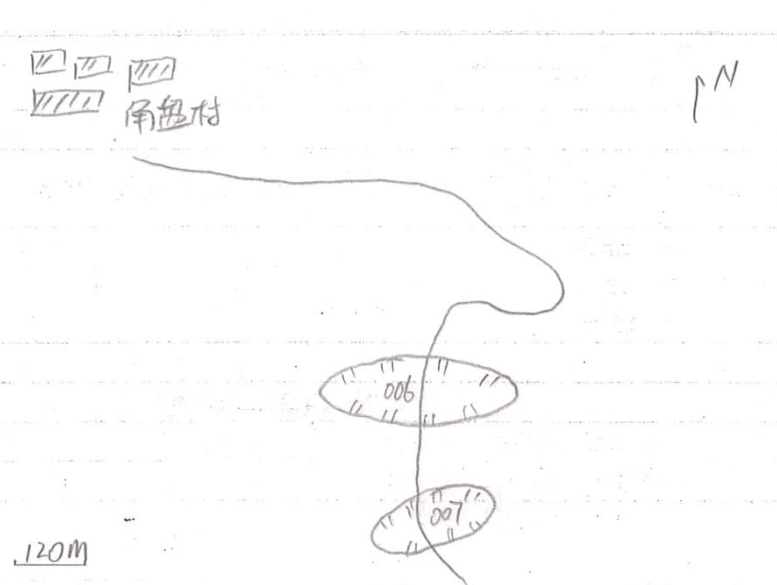 N
角盘村
006
007
120M